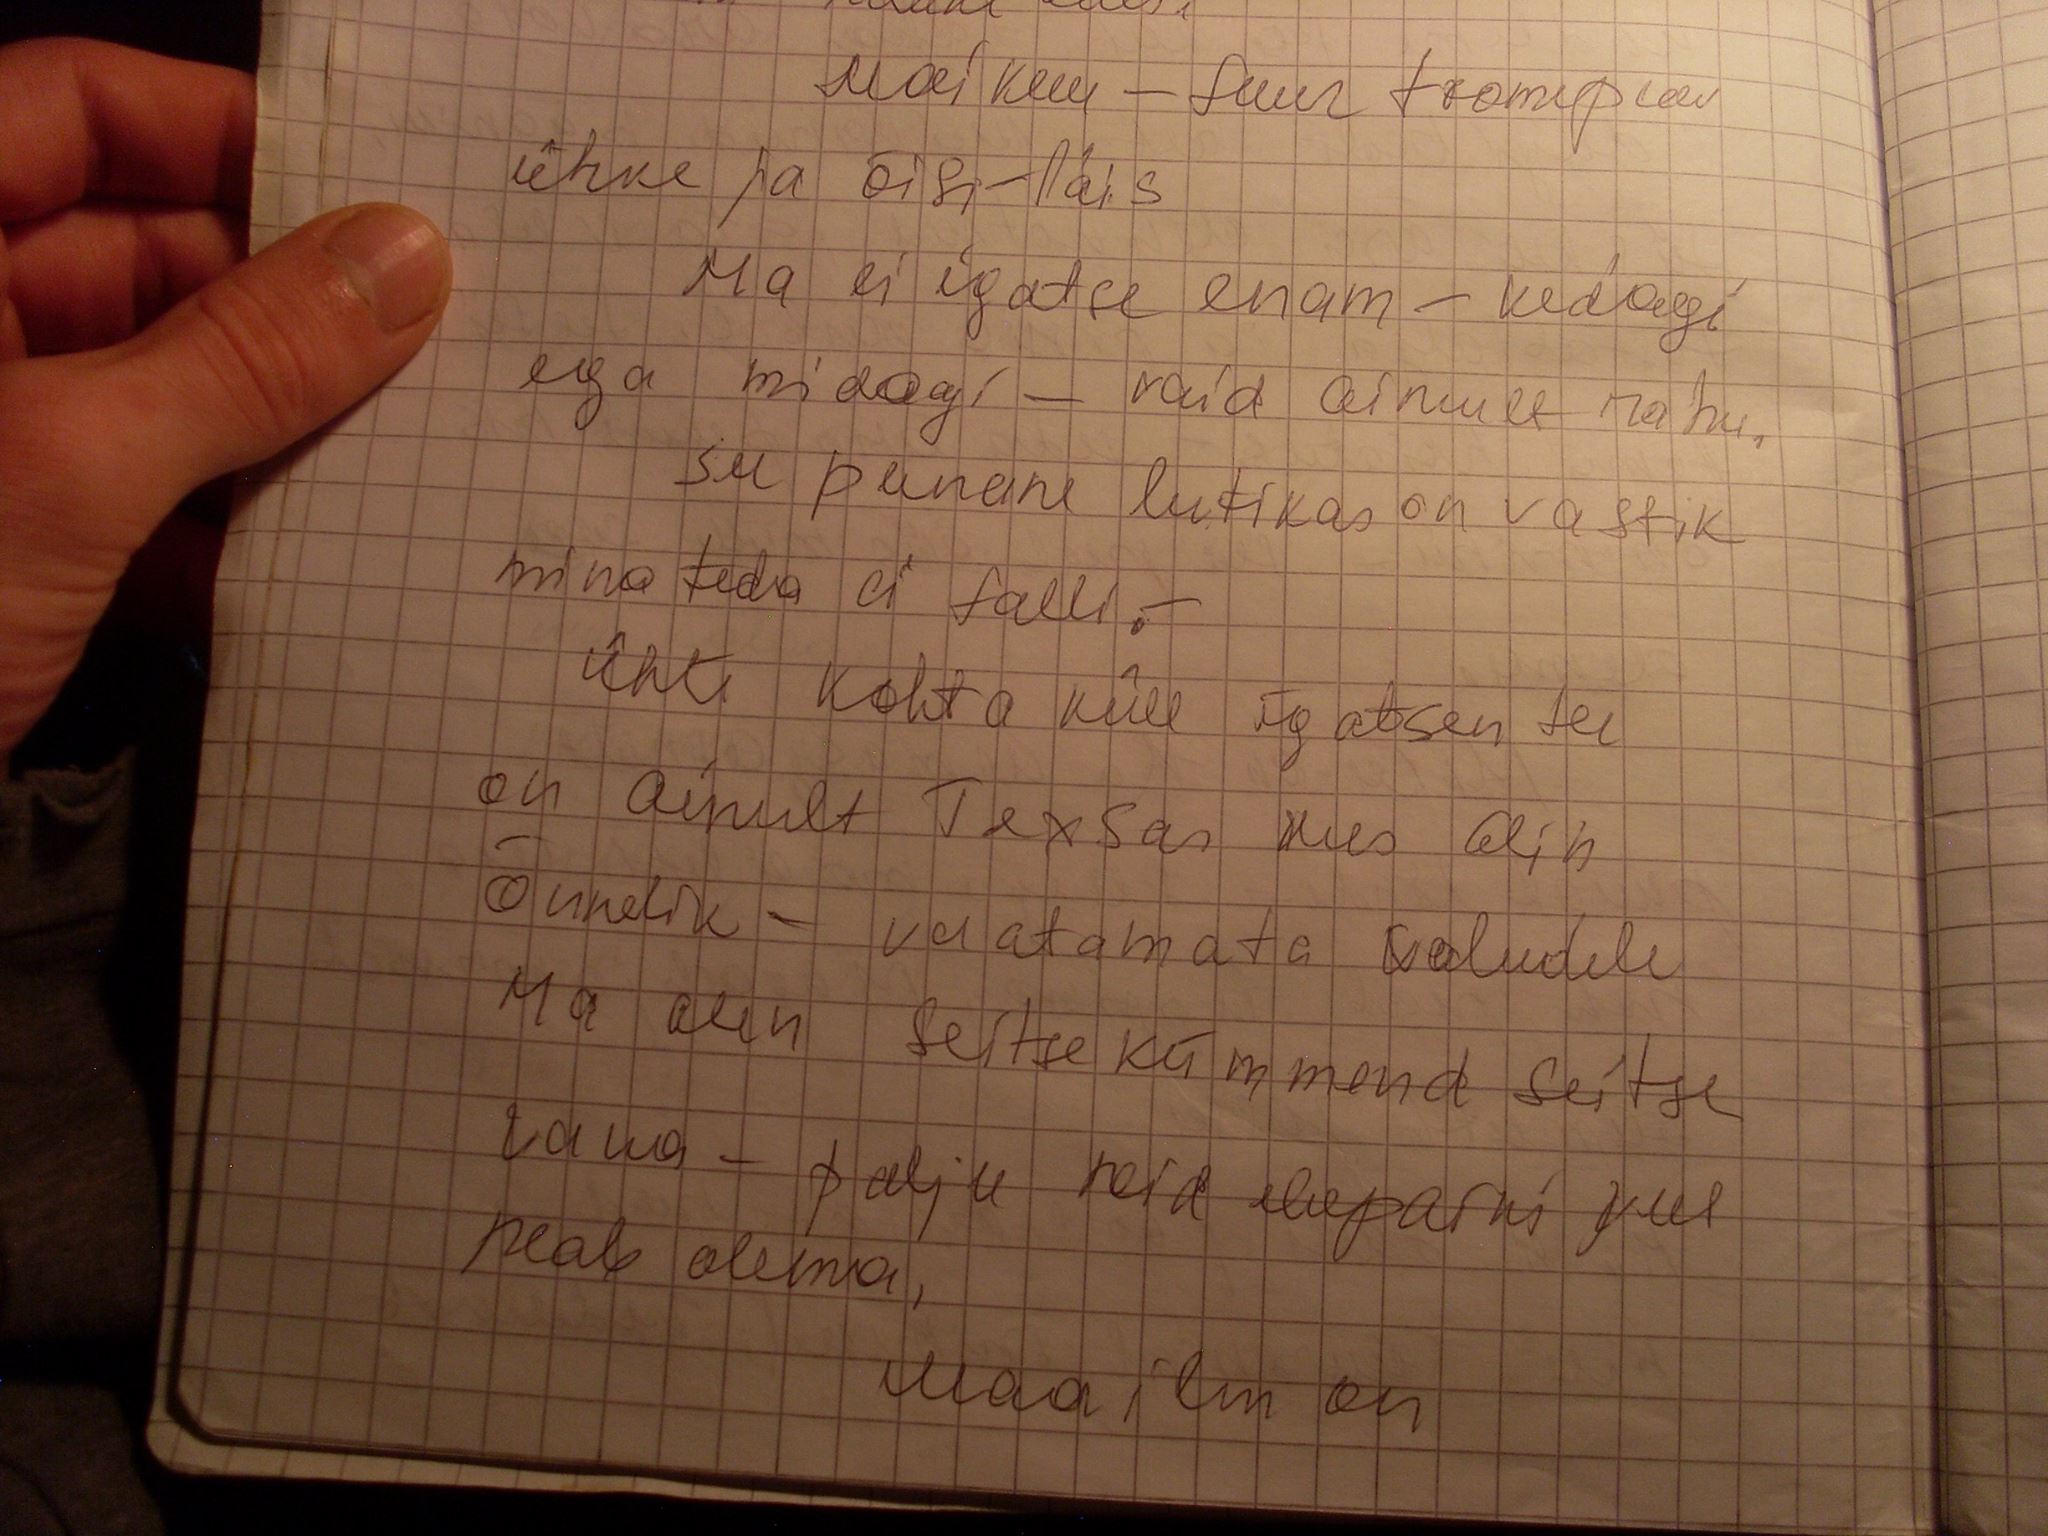 Maikuu – suur trompie
ühke ja õisi-täis
Ma ei igatse enam – kedagi
ega midagi – vaid ainult rahu.
su punane lutikas on vastik
mina teda ei salli.–
Ühte kohta küll igatsen see
on ainult Texsas kus olin
Õnnelik – vaatamata valudele
Ma olen seitsekümmend seitse
vana – palju neid veel
peab olema,
Maailm on